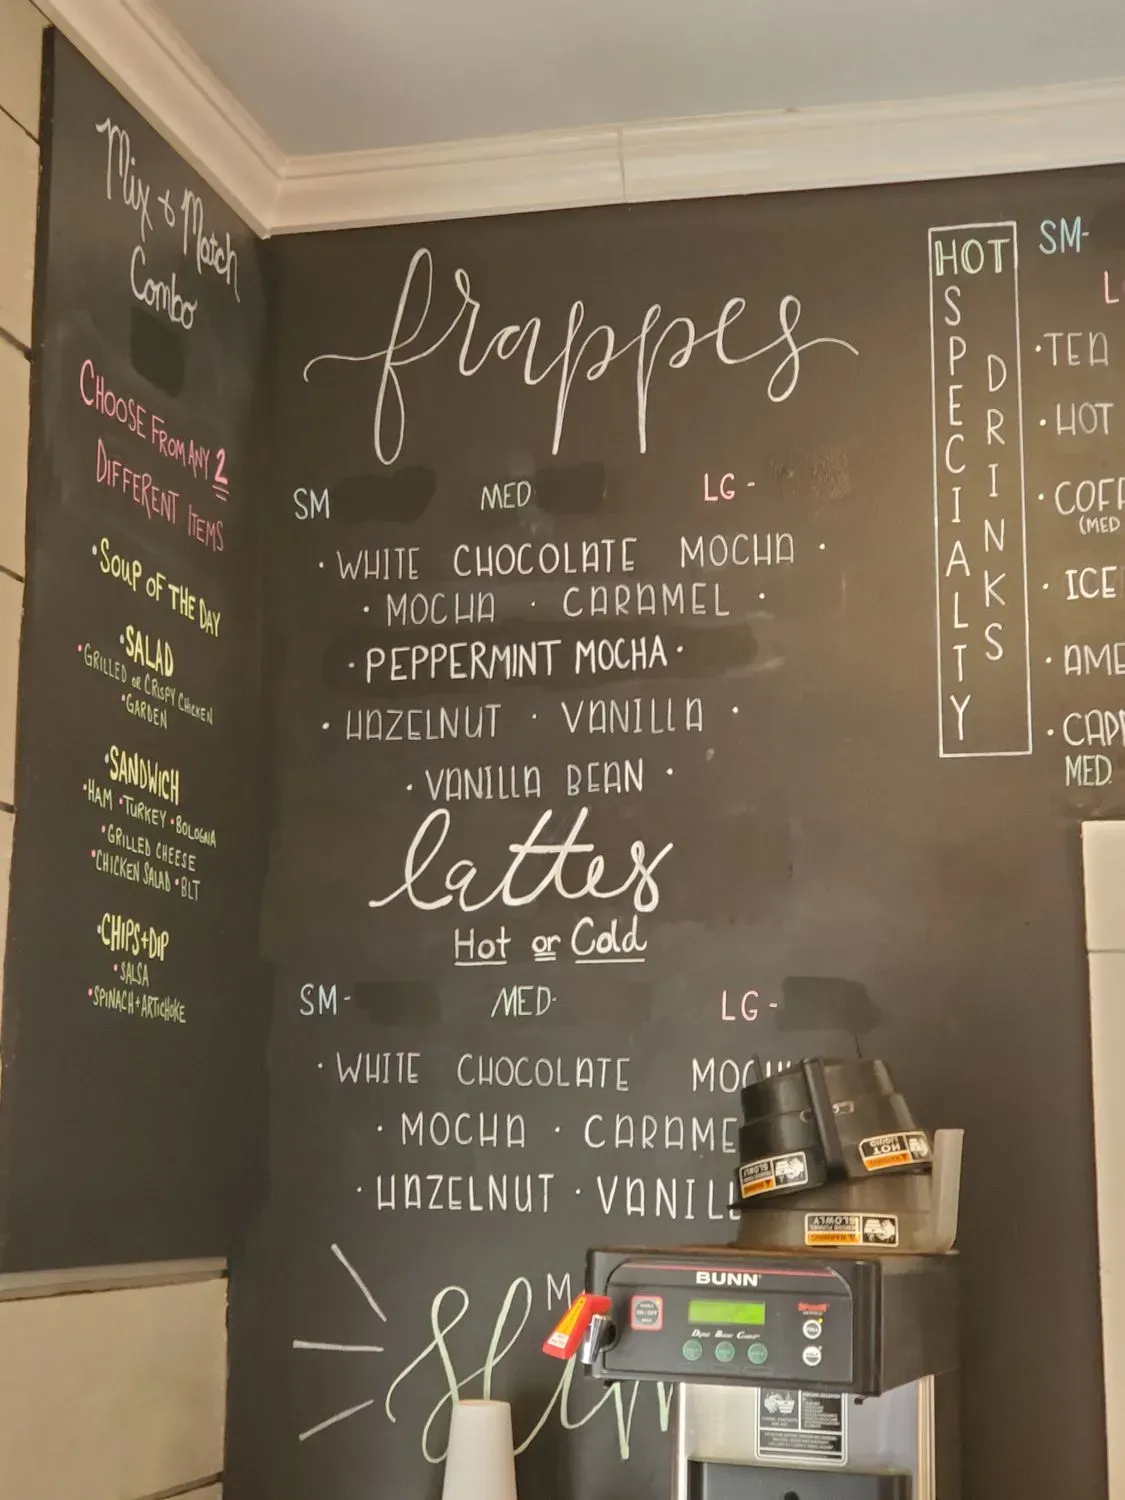 Mix & Match
Combo
CHOOSE FROM ANY 2
DIFFERENT ITEMS
•SOUP OF THE DAY
•SALAD
•GRILLED OR CRISPY CHICKEN
•GARDEN
•SANDWICH
•HAM •TURKEY •BOLOGNA
•GRILLED CHEESE
•CHICKEN SALAD •BLT
•CHIPS+DIP
•SALSA
•SPINACH+ARTICHOKE
frappes
SM MED LG -
• WHITE CHOCOLATE MOCHA •
• MOCHA • CARAMEL •
• PEPPERMINT MOCHA •
• HAZELNUT • VANILLA •
• VANILLA BEAN •
lattes
Hot or Cold
SM- MED- LG -
• WHITE CHOCOLATE
• MOCHA • CARAME
• HAZELNUT • VANILL
HOT
SPECIALTY
DRINKS
SM-
L
•TEA
•HOT
•COFF
(MED
• ICE
• AME
• CAPP
MED.
BUNN
HOT
LIQUID
WARNING